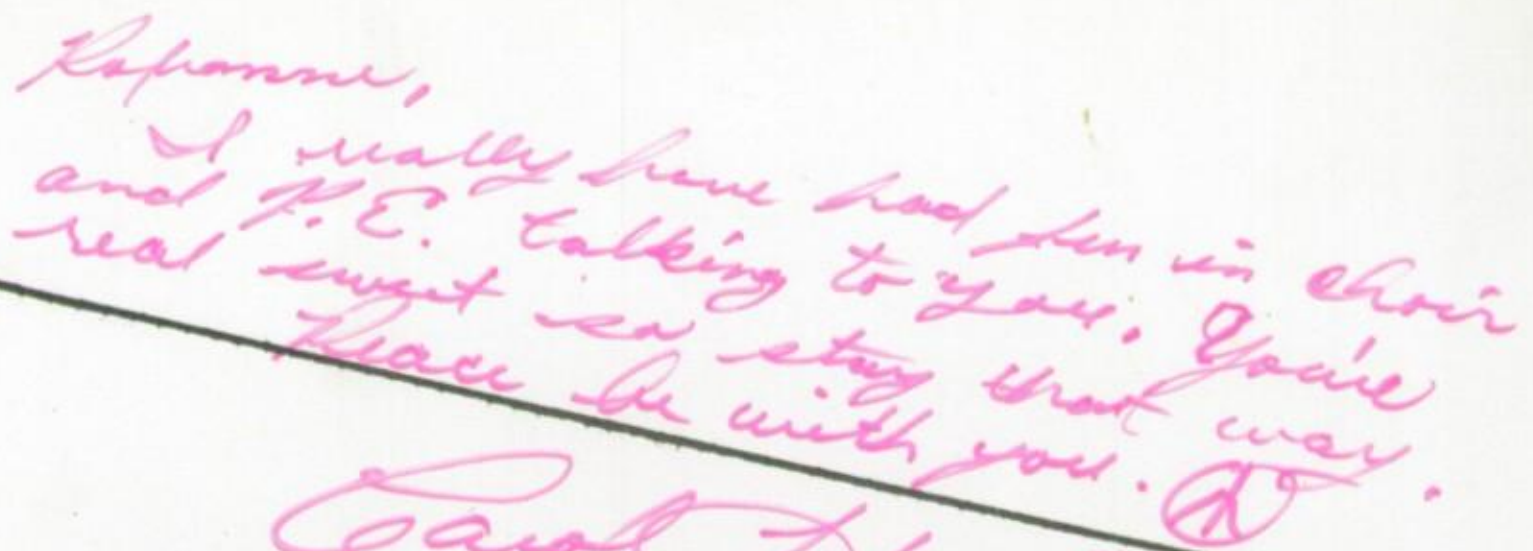 Roxanne,
I really have had fun in choir
and P.E. talking to you. You're
real sweet so stay that way.
Peace be with you.
Carol